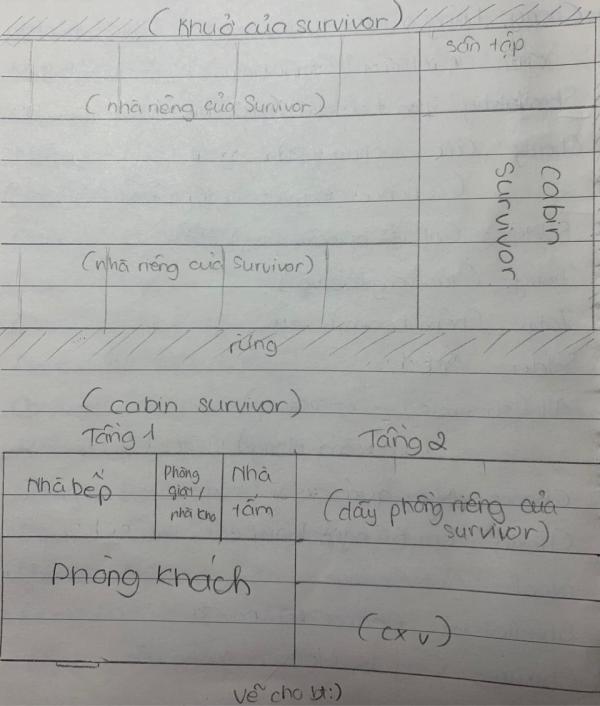 (Khu ở của survivor)
sân tập
(nhà riêng của Survivor)
Cabin
Survivor
(nhà riêng của Survivor)
rừng
(cabin survivor)
Tầng 1
Tầng 2
Nhà bếp
Phòng
giặt/
nhà kho
Nhà
tắm
(dãy phòng riêng của
survivor)
Phòng khách
(cx v)
vẽ cho